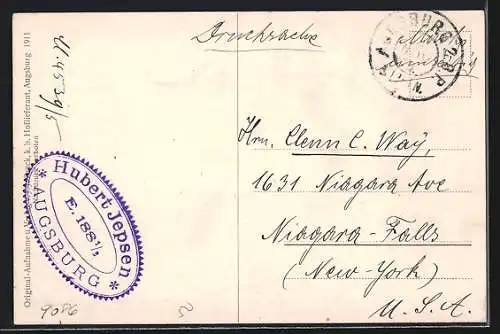 Drucksache
AUGSBURG 2 B P
Hrn. Clenn C. Way,
1631 Niagara Ave
Niagara-Falls
(New-York)
U.S.A.
Hubert Jepsen
E. 188 1/2
* AUGSBURG *
Original-Aufnahme k. b. Hoflieferant, Augsburg. 1911
9086